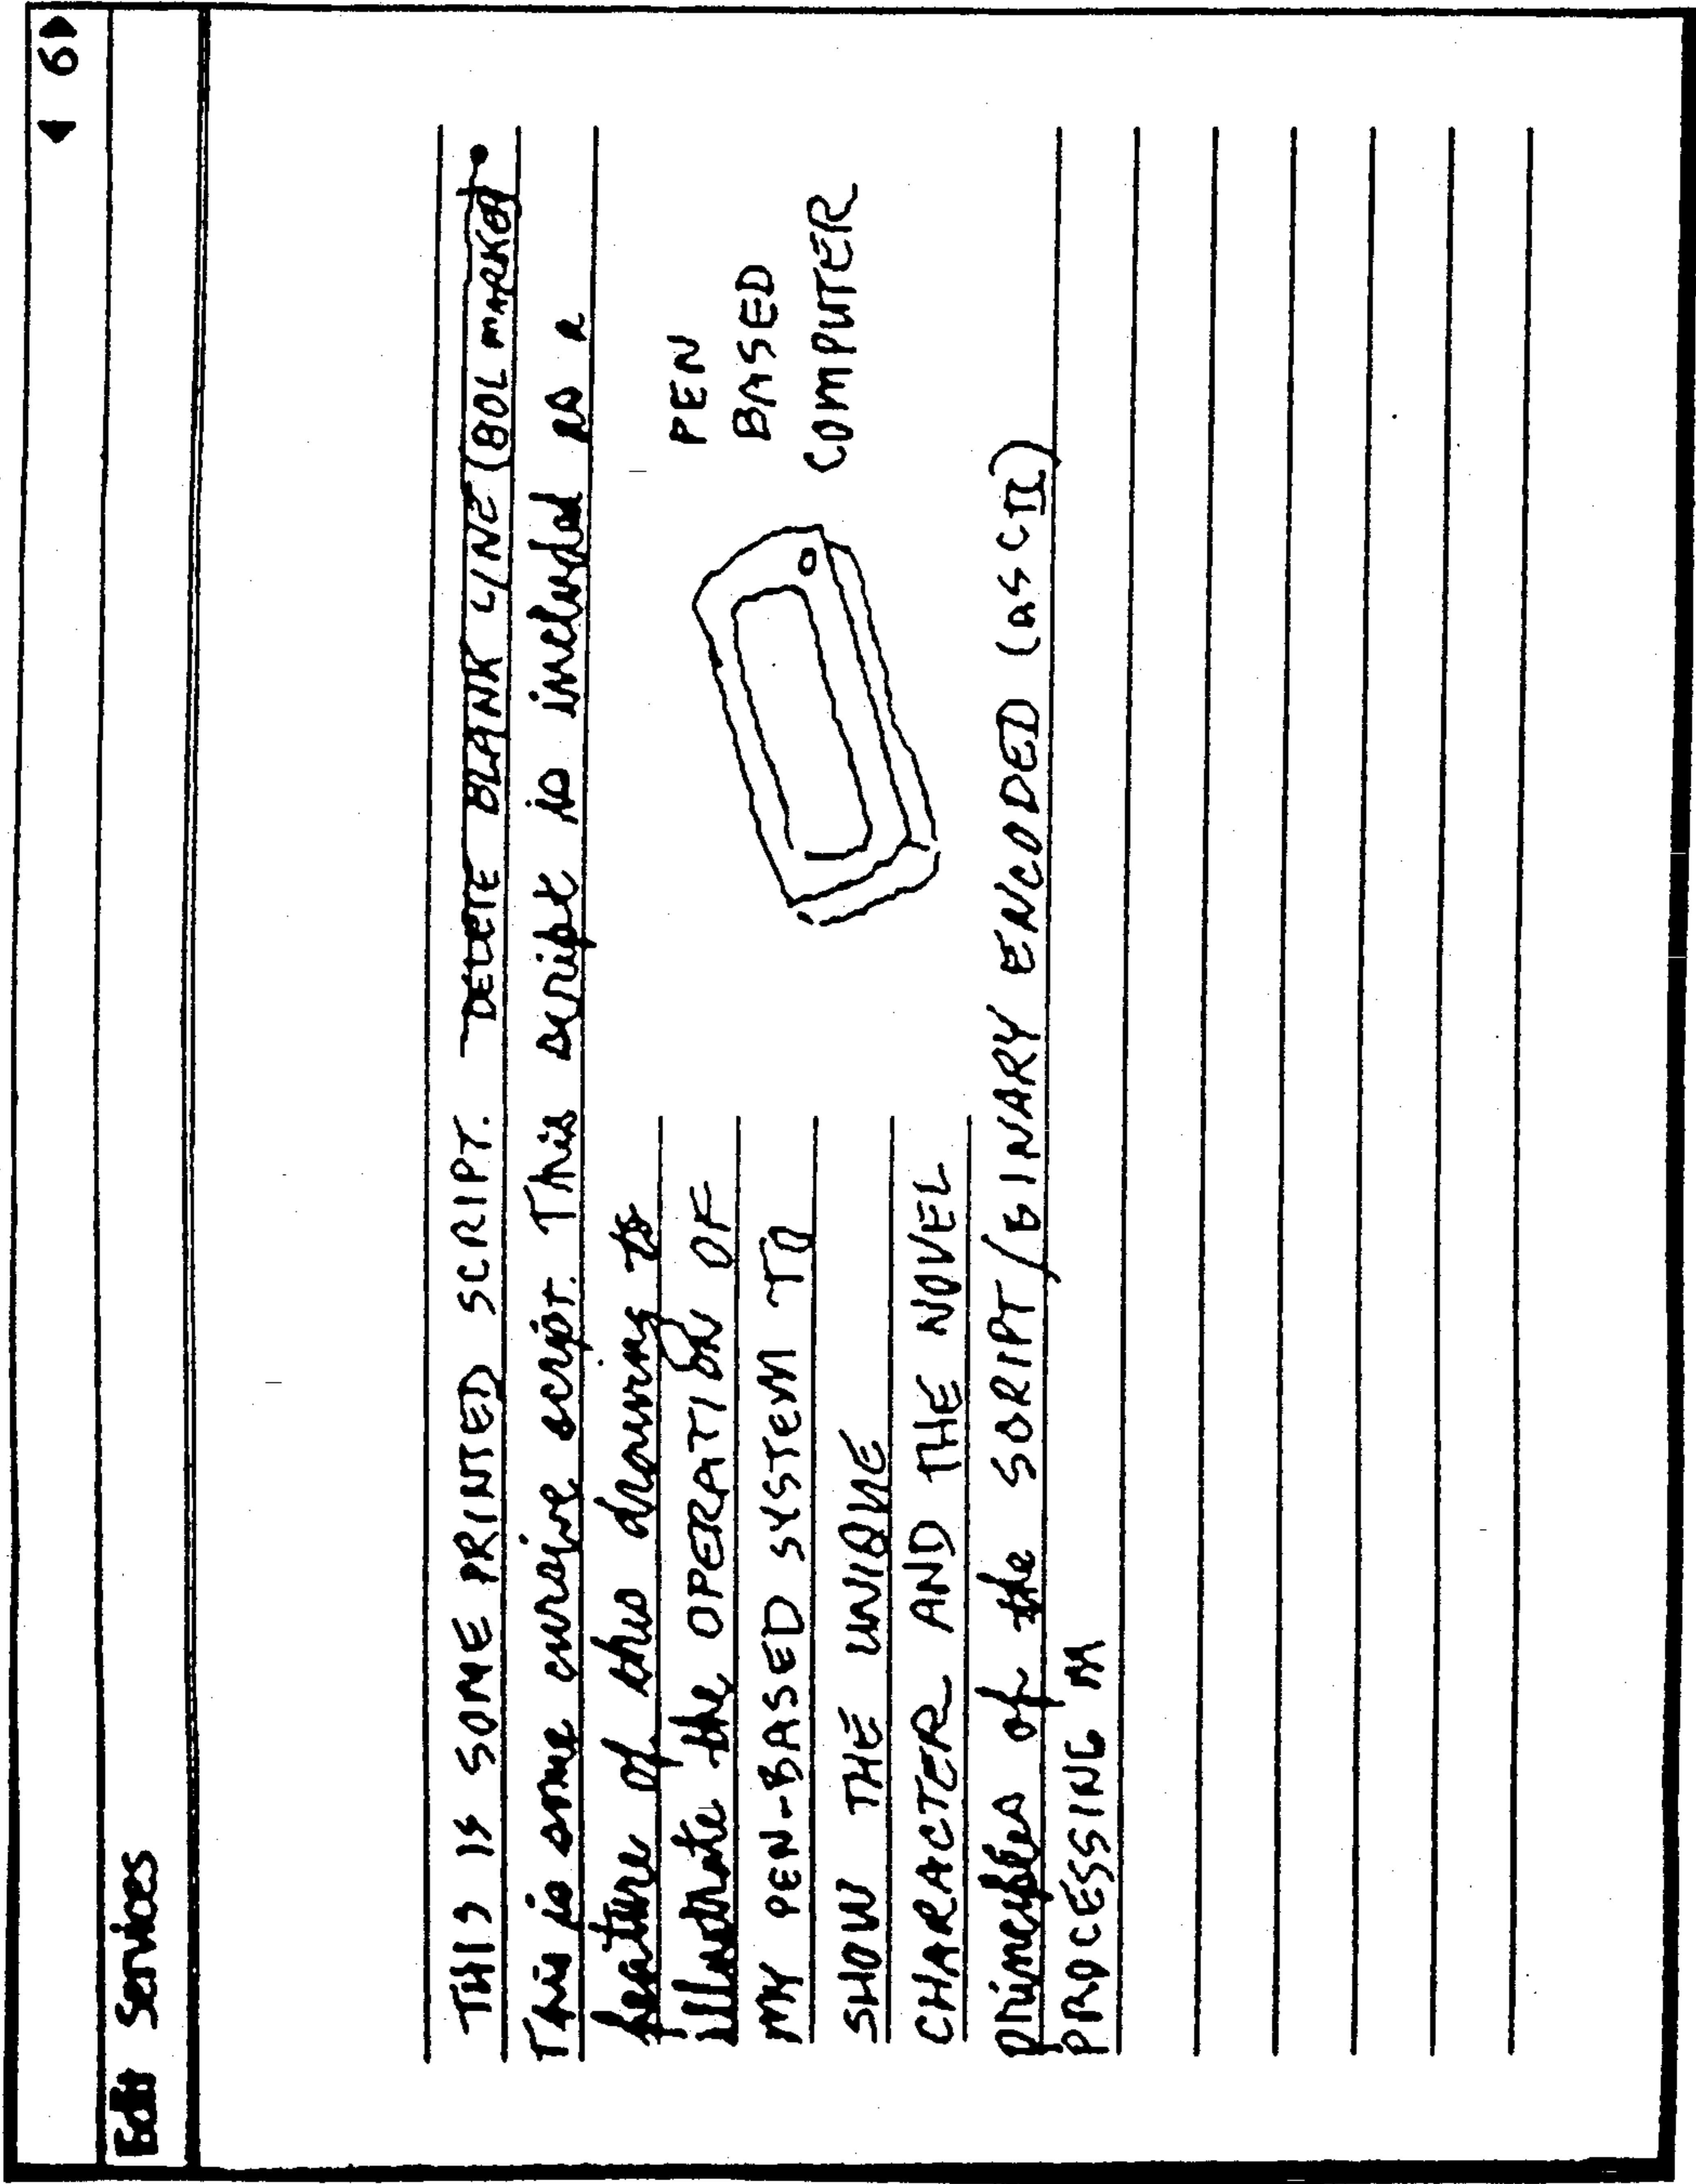 ◀ 6▶
Edit Services
THIS IS SOME PRINTED SCRIPT. DELETE BLANK LINE (BOL MARKER
This is some cursive script. This script is included as a
feature of this drawing to
illustrate the OPERATION OF
MY PEN-BASED SYSTEM TO
SHOW THE UNIQUE
CHARACTER AND THE NOVEL
PEN
BASED
COMPUTER
principles of the SCRIPT/BINARY ENCODED (ASCII)
PROCESSING M